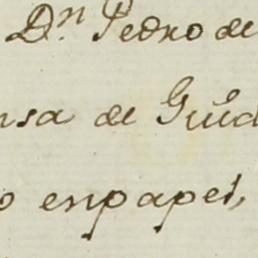 Dn Pedro de
nsa de Guid
o enpapel,